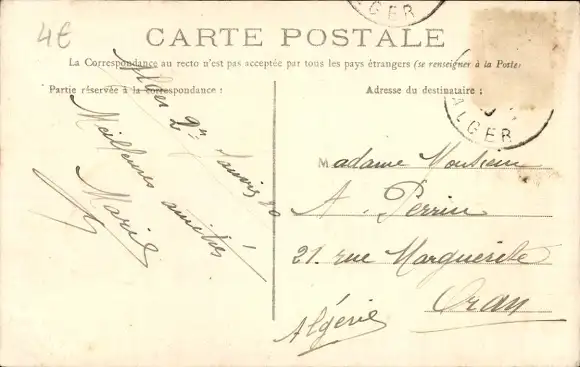 4€
ALGER
CARTE POSTALE
La Correspondance au recto n'est pas acceptée par tous les pays étrangers (se renseigner à la Poste)
Partie réservée à la correspondance :
Adresse du destinataire :
ALGER
Alger 2
Meilleures amitiés
Marie
Madame Monsieur
A. Perrin
21. rue Marguerite
Oran
Algérie